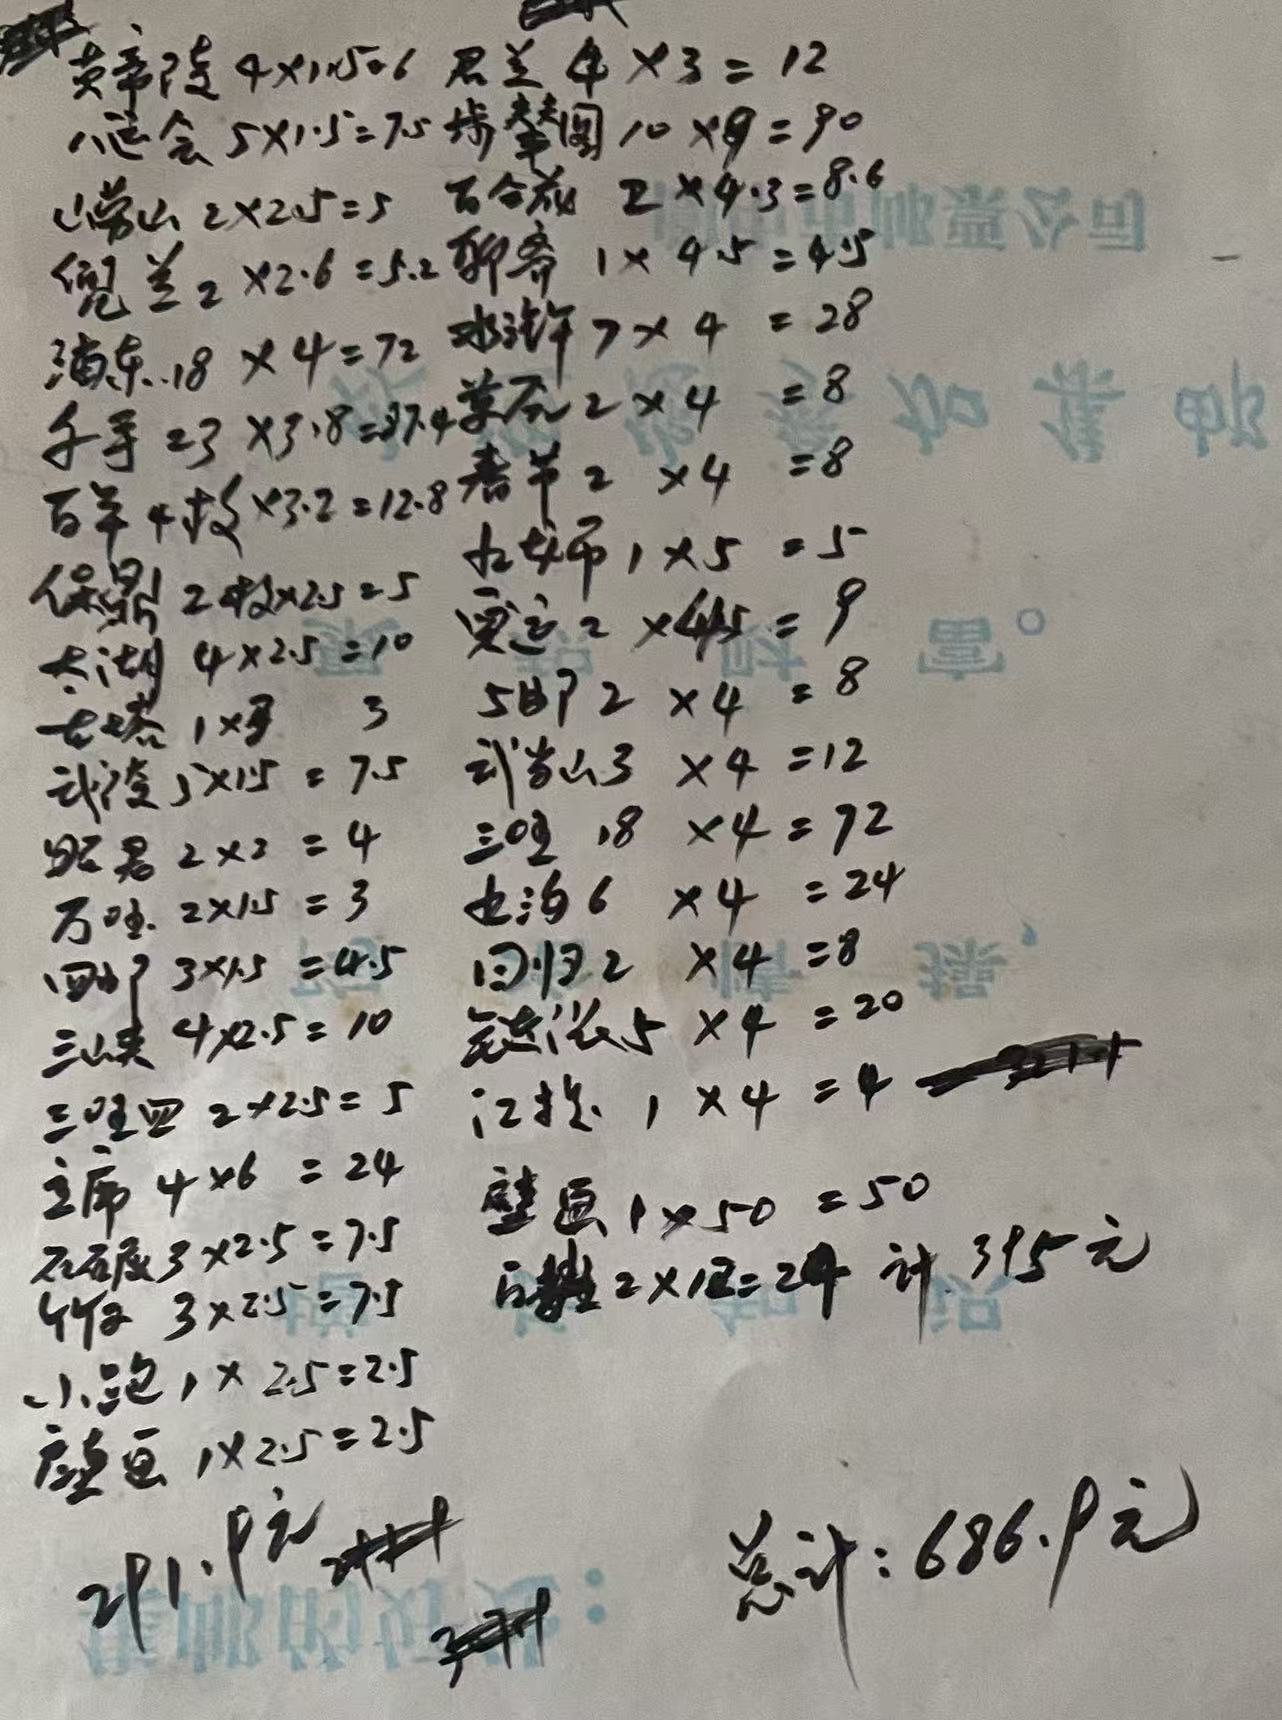 黄帝陵 4×1.5=6
八运会 5×1.5=7.5
崂山 2×2.5=5
兰 2×2.6=5.2
浦东 18×4=72
千手 23×3.8=87.4
百年 4枚×3.2=12.8
保鼎 2枚×2.5=5
太湖 4×2.5=10
古塔 1×3 3
武陵 5×1.5=7.5
昭君 2×2=4
万哇 2×1.5=3
四邮 3×1.5=4.5
三峡 4×2.5=10
三哇四 2×2.5=5
主席 4×6=24
3×2.5=7.5
竹子 3×2.5=7.5
小 1×2.5=2.5
壁画 1×2.5=2.5
291.9元
君兰 4×3=12
步辇图 10×9=90
百合花 2×4.3=8.6
聊斋 1×4.5=4.5
水浒 7×4=28
莫高 2×4=8
春节 2×4=8
1×5=5
奥运 2×4.5=9
5邮 2×4=8
武当山 3×4=12
三哇 18×4=72
6×4=24
回归 2×4=8
5×4=20
1×4=4
壁画 1×50=50
2×12=24 计 395元
总计:686.9元